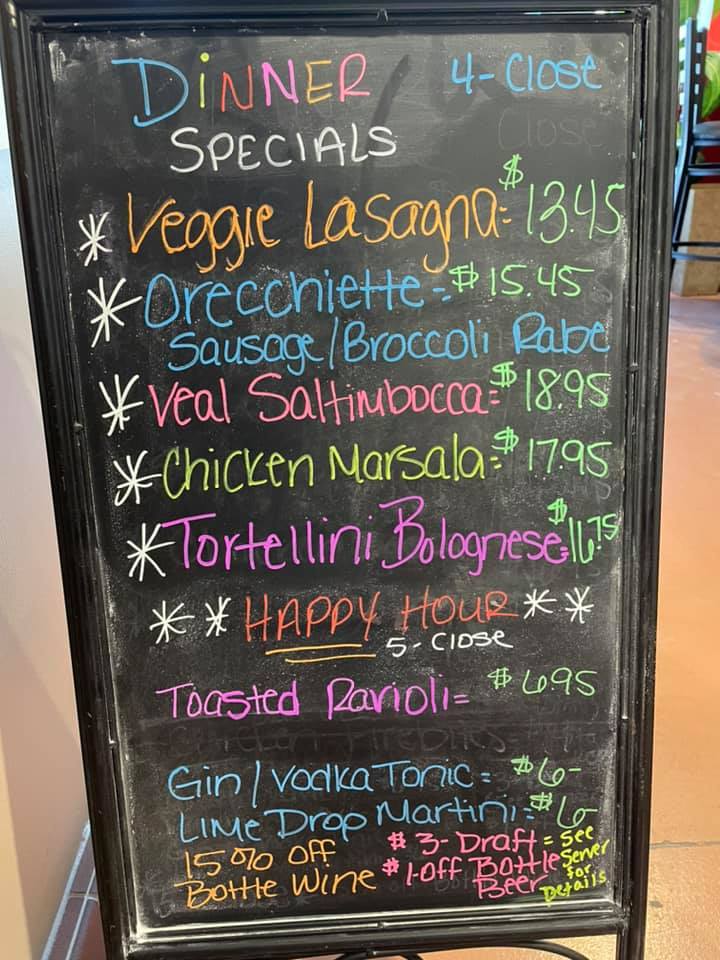 DiNNER 4-Close
SPECIALS
* Veggie Lasagna= $13.45
* Orecchiette-$15.45
Sausage/Broccoli Rabe
* Veal Saltimbocca=$18.95
* Chicken Marsala=$17.95
* Tortellini Bolognese=$16.75
** HAPPY HOUR **
5-Close
Toasted Ravioli= $6.95
Gin/Vodka Tonic= $6-
LIME Drop Martini=$6-
15% Off $3-Draft = See
Bottle Wine $1-Off Bottle Server
Beer for
Details